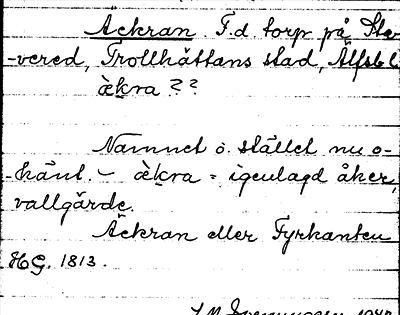 Äckran. F.d. torp på Sta-
-vered, Trollhättans stad, Älfsb.l
àkra ??
Namnet o. stället nu o-
-känt. - àkra = igenlagd åker,
vallgärde.
Äckran eller Fyrkanten
HG. 1813.